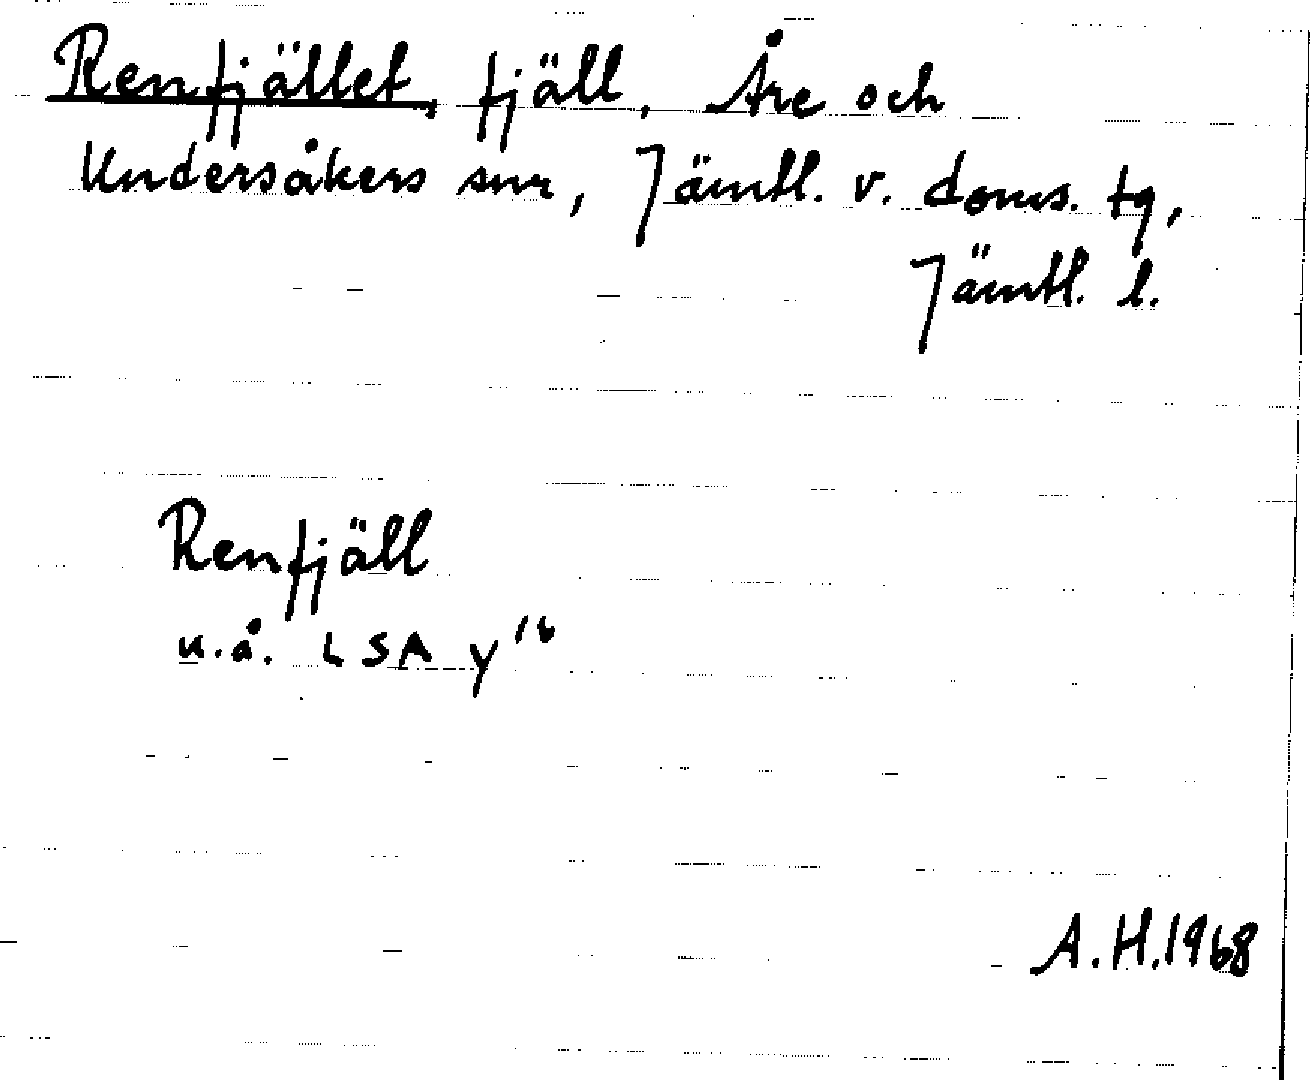 Renfjället, fjäll, Åre och
Undersåkers snr, Jämtl. v. doms. tg,
Jämtl. l.
Renfjäll
u.å. LSA y 16
A.H. 1968